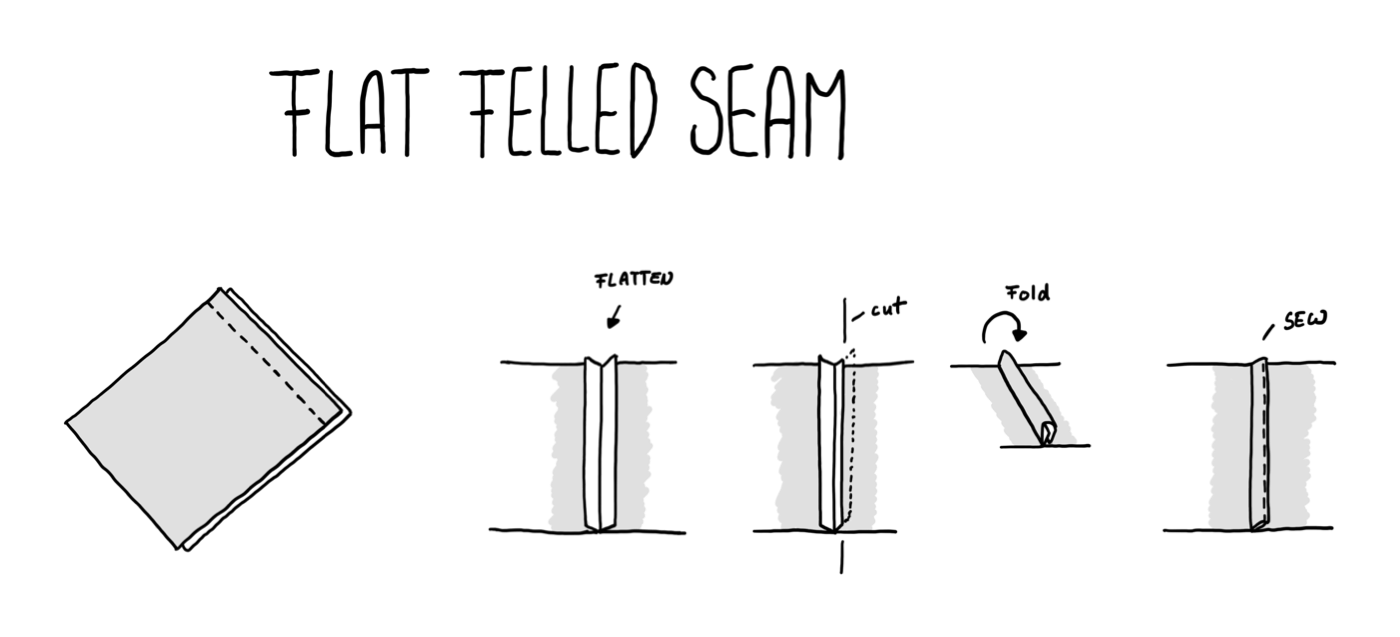 FLAT FELLED SEAM
FLATTEN
cut
Fold
SEW